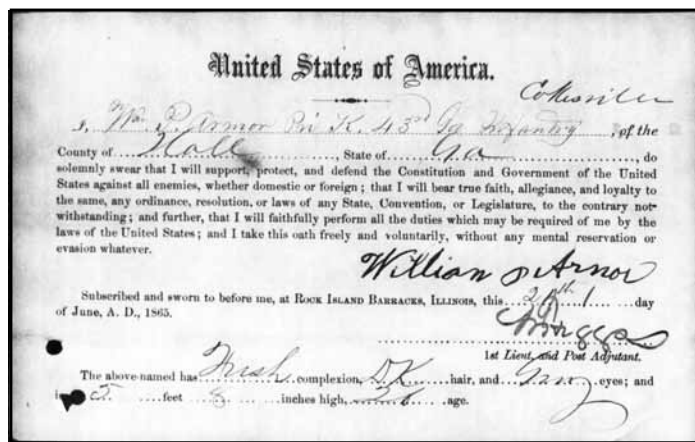 United States of America.
I, Wm P. Armor Pri K. 43rd Ga Infantry, of the
County of Hall, State of Ga, do
solemnly swear that I will support, protect, and defend the Constitution and Government of the United
States against all enemies, whether domestic or foreign; that I will bear true faith, allegiance, and loyalty to
the same, any ordinance, resolution, or laws of any State, Convention, or Legislature, to the contrary not-
withstanding; and further, that I will faithfully perform all the duties which may be required of me by the
laws of the United States; and I take this oath freely and voluntarily, without any mental reservation or
evasion whatever.
William P Armor
Subscribed and sworn to before me, at ROCK ISLAND BARRACKS, ILLINOIS, this day
of June, A. D., 1865.
1st Lieut. and Post Adjutant.
The above-named has Fresh complexion, DK hair, and Gray eyes; and
is 5 feet 8 inches high, age.